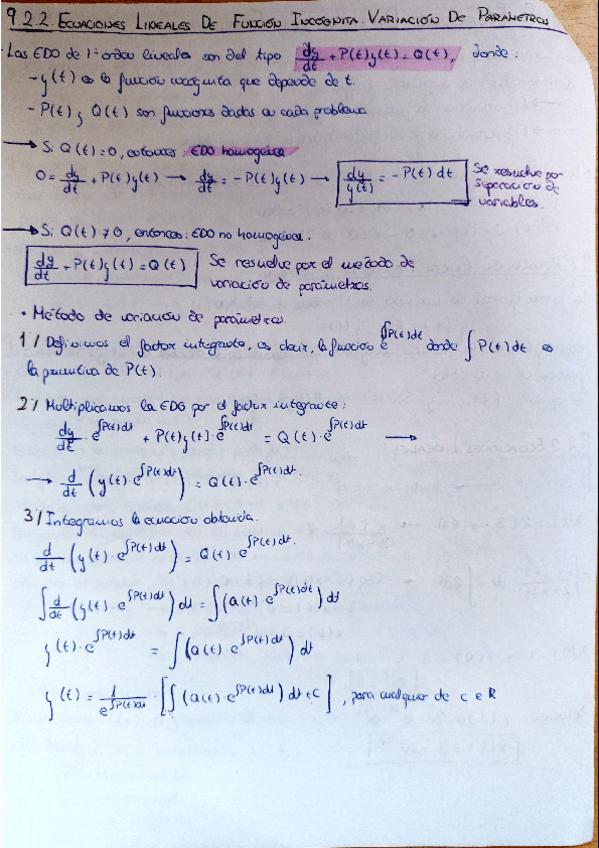 9.2.2. ECUACIONES LINEALES DE FUNCIÓN INCÓGNITA. VARIACIÓN DE PARÁMETROS
· Las EDO de 1er orden lineales son del tipo dy/dt + P(t)y(t) = Q(t), donde:
- y(t) es la función incógnita que depende de t.
- P(t) y Q(t) son funciones dadas en cada problema.
→ Si Q(t)=0, entonces: EDO homogénea
0 = dy/dt + P(t)y(t) → dy/dt = - P(t)y(t) → dy/y(t) = - P(t) dt Se resuelve por separación de variables.
→ Si Q(t) ≠ 0, entonces: EDO no homogénea.
dy/dt + P(t)y(t) = Q(t) Se resuelve por el método de
variación de parámetros.
· Método de variación de parámetros.
1/ Definimos el factor integrante, es decir, la función e^∫P(t)dt donde ∫ P(t) dt es
la primitiva de P(t).
2/ Multiplicamos la EDO por el factor integrante:
dy/dt · e^∫P(t)dt + P(t)y(t) · e^∫P(t)dt = Q(t) · e^∫P(t)dt →
→ d/dt (y(t) · e^∫P(t)dt) = Q(t) · e^∫P(t)dt.
3/ Integramos la ecuación obtenida.
d/dt (y(t) · e^∫P(t)dt) = Q(t) · e^∫P(t)dt.
∫ d/dt (y(t) · e^∫P(t)dt) dt = ∫ (Q(t) · e^∫P(t)dt) dt
y(t) · e^∫P(t)dt = ∫ (Q(t) · e^∫P(t)dt) dt
y(t) = 1/e^∫P(t)dt · [∫ (Q(t) · e^∫P(t)dt) dt + C], para cualquier de c ∈ R